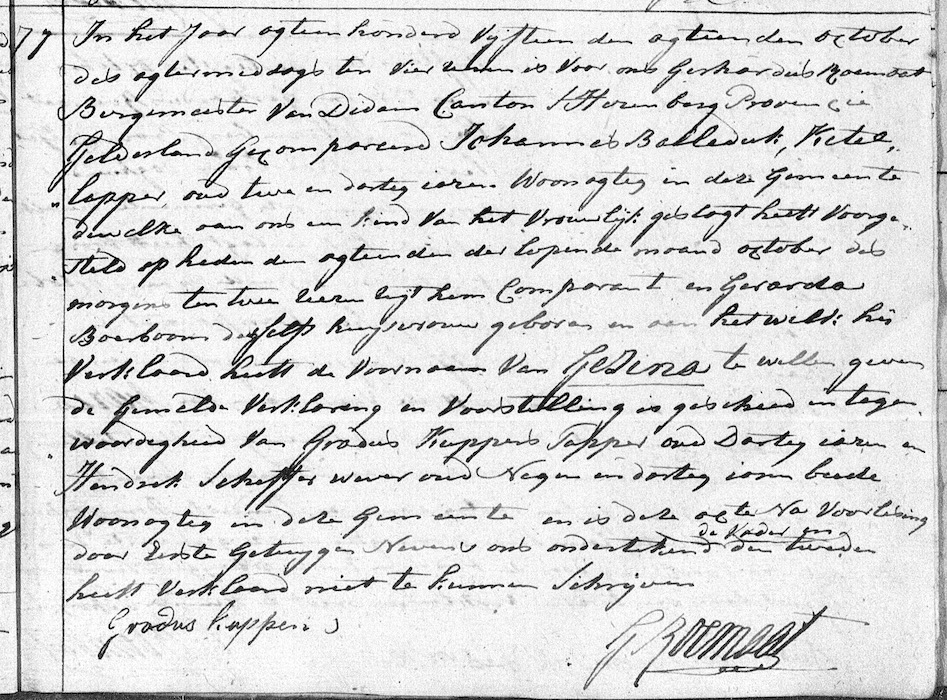 77 In het Jaar agteen honderd Vijfteen den agteenden october
des agtermiddags ten vier uuren is voor ons Gerhardus Roemaat
Burgemeester Van Didam Canton s'Herenberg Provincie
Gelderland Gecompareerd Johannes Balleduk, Ketel,
„lapper, oud twee en dartig iaren. Woonagteg in deze Gemeente
dewelke aan ons een kind Van het Vrouwlijk geslagt heeft Voorge,
„steld op heden den agteenden der lopende maand october des
morgens ten twee uuren uyt hem Comparant en Gerarda
Boerboom deszelfs huysvrouw geboren en aan hetwelk hij
Verklaard heeft de Voornaam Van Gesina te willen geven
de Gemelde Verklaring en Voorstelling is geschied in tegen,
„woordigheid Van Gradus Kuppers Tapper oud Dartig iaren en
Hendrik Scheffer wever oud Negen en dartig iaren beide
Woonagteg in deze Gemeente en is deze acte Na Voorlesing
de Vader en
door Eerste Getuygen Nevens ons ondertekend den tweeden
heeft Verklaard niet te kunnen Schrijven
Gradus kuppers
G Roemaat